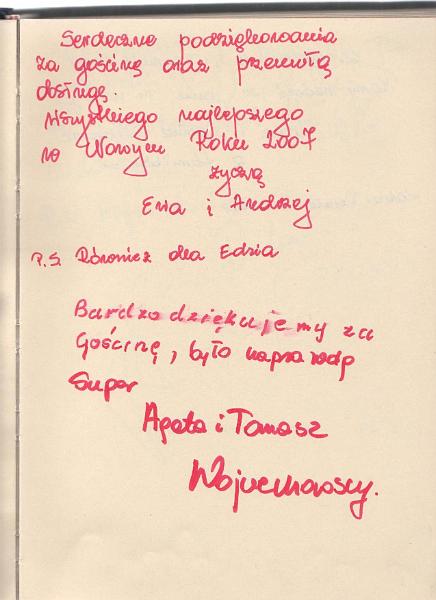 Serdeczne podziękowania
za gościnę oraz przemiłą
obsługę.
Wszystkiego najlepszego
w Nowym Roku 2007
życzą
Ewa i Andrzej
P.S. Również dla Edzia
Bardzo dziękujemy za
Gościnę, było naprawdę
Super
Agata i Tomasz
Wojciechowscy.